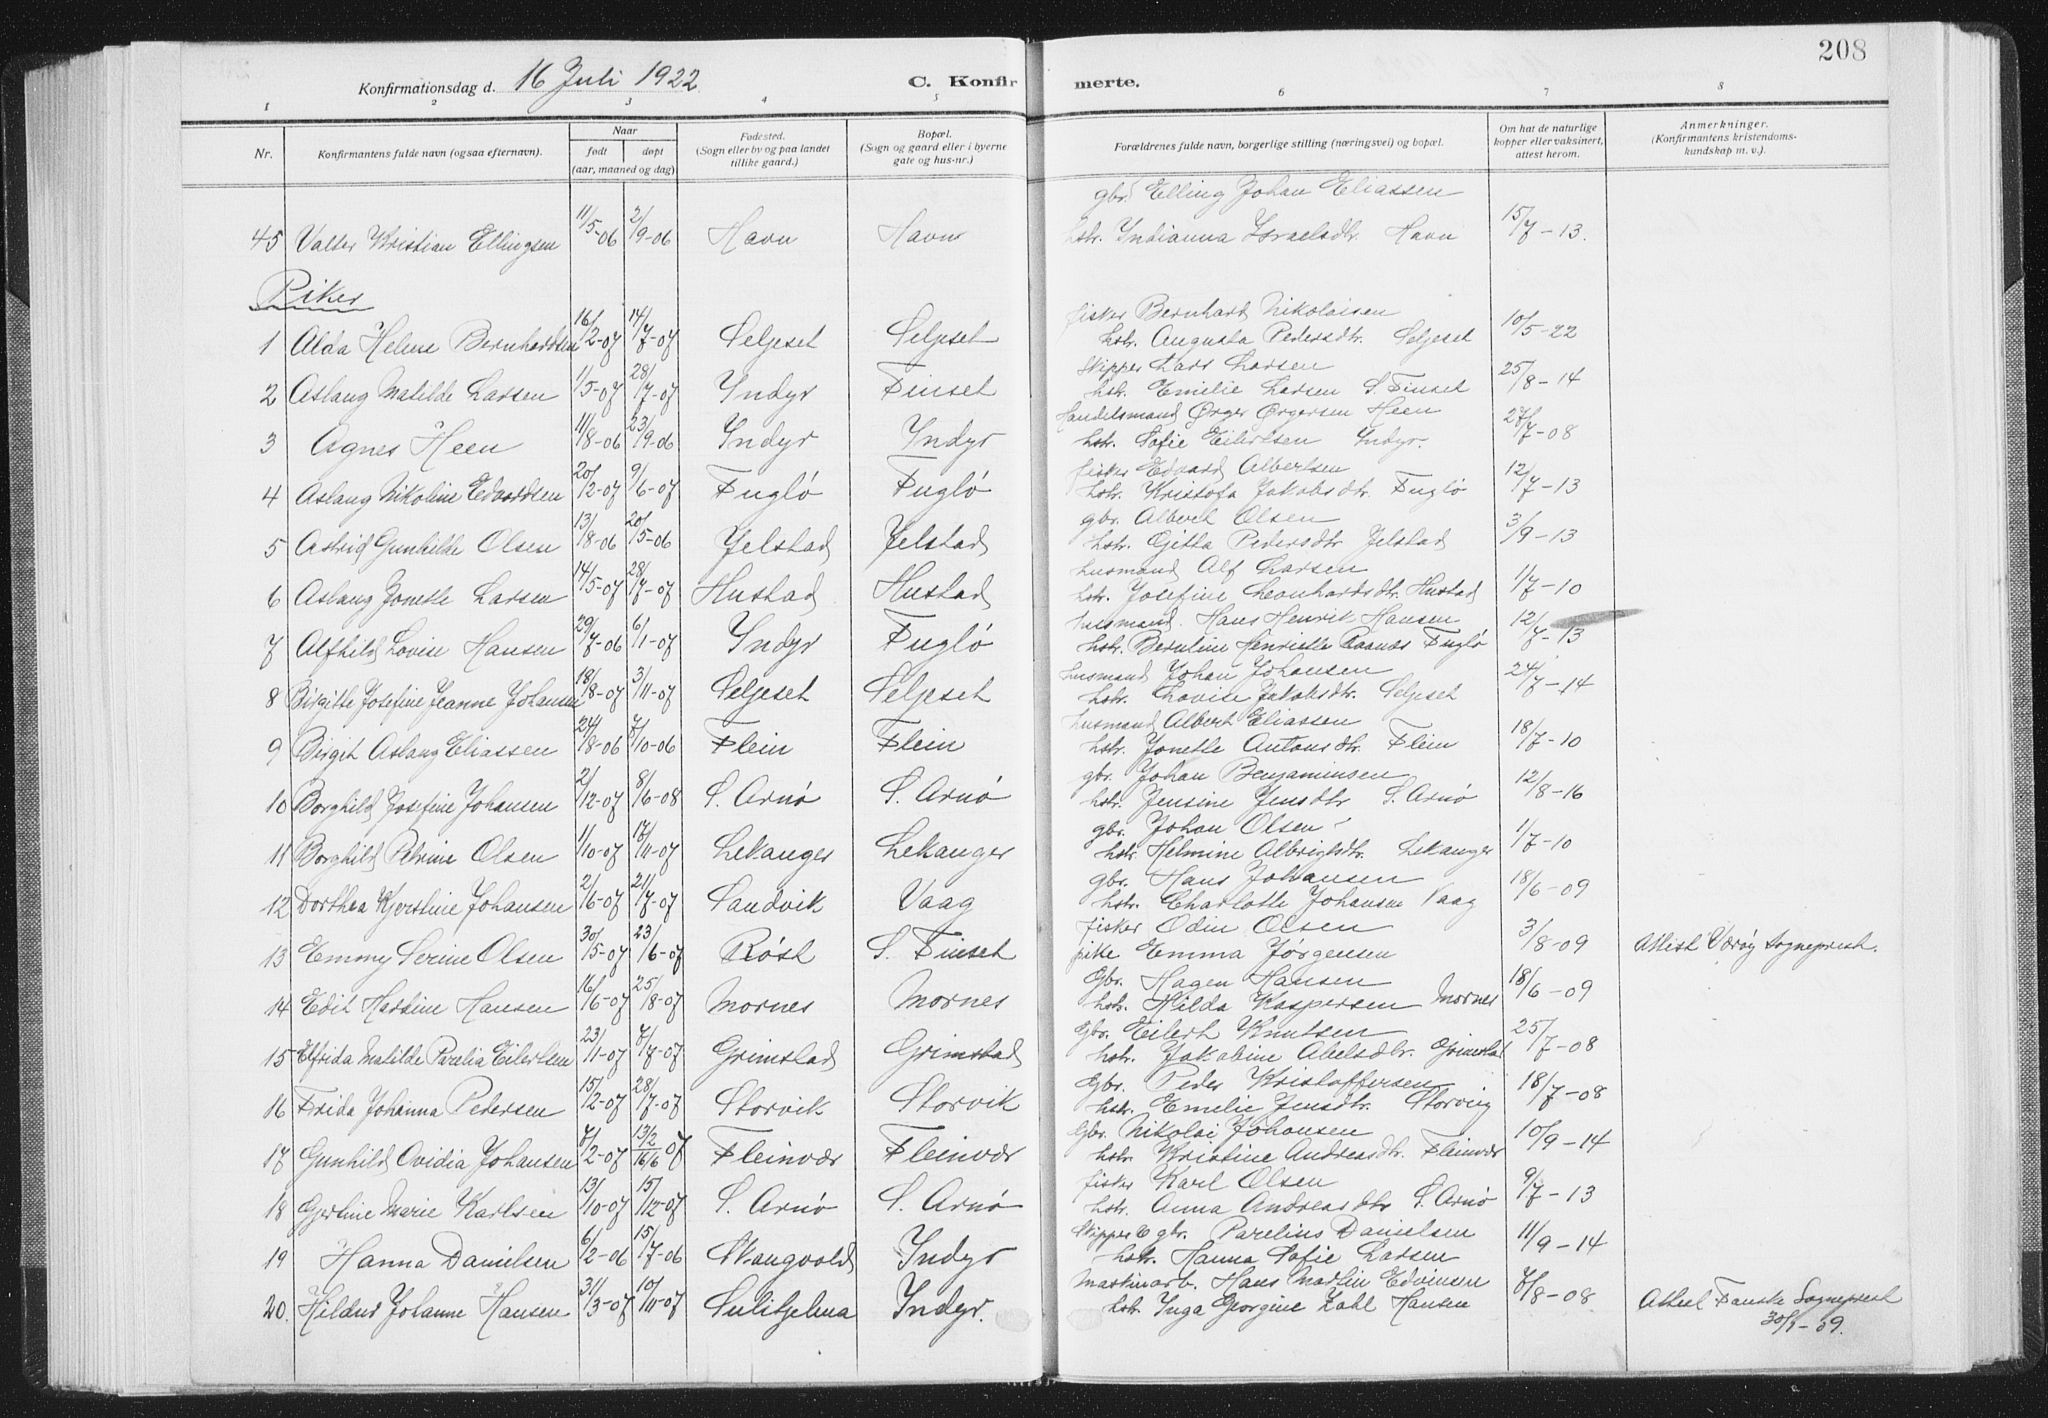 208
Konfirmationsdag d. 16 Juli 1922
C. Konfirmerte.
1 2 3 4 5 6 7 8
Nr.
Konfirmantens fulde navn (ogsaa efternavn).
Naar
født
døpt
(aar, maaned og dag)
Fødested.
(Sogn eller by og paa landet
tillike gaard.)
Bopæl.
(Sogn og gaard eller i byerne
gate og hus-nr.)
Forældrenes fulde navn, borgerlige stilling (næringsvei) og bopæl.
Om hat de naturlige
kopper eller vaksinert,
attest herom.
Anmerkninger.
(Konfirmantens kristendoms-
kundskap m. v.).
gbr. Elling Johan Eliassen
45 Valter Kristian Ellingsen 11/5-06 2/9-06 Havn Havn hstr. Indianna Israelsdtr. Havn 15/7-13.
Piker
fisker Bernhard Nikolaisen
1 Alda Helene Bernhardtsen 16/2-07 14/7-07 Seljeset Seljeset hstr. Augusta Pedersdtr. Seljeset 10/5-22
Skipper Lars Larsen
2 Aslaug Matilde Larsen 1/5-07 28/7-07 Indyr Finset hstr. Emilie Larsen S. Finset 25/8-14
Handelsmand Ørger Ørgersen Heen
3 Agnes Heen 11/8-06 23/9-06 Indyr Indyr hstr. Sofie Eilertsen Indyr. 27/7-08
fisker Edvard Albertsen
4 Aslaug Nikoline Edvardsen 20/12-07 9/6-07 Fuglø Fuglø hstr. Kristofa Jakobsdtr. Fuglø 12/7-13
gbr. Albert Olsen
5 Astrid Gunhilde Olsen 13/8-06 20/5-06 Jelstad Jelstad hstr. Gitta Pedersdtr Jelstad 3/9-13
husmand Alf Larsen
6 Aslaug Jonette Larsen 14/5-07 28/7-07 Hustad Hustad hstr. Josefine Leonhardsdtr. Hustad 1/7-10
husmand. Hans Henrik Hansen
7 Alfhild Lovise Hansen 29/7-06 6/1-07 Indyr Fuglø hstr. Berntine Henriette Raanes Fuglø 12/7-13
husmand Johan Johansen
8 Birgitte Josefine Jeanne Johansen 18/8-07 3/11-07 Seljeset Seljeset hstr. Lovise Jakobsdtr. Seljeset 24/7-14
husmand Albert Eliassen
9 Birgit Aslaug Eliassen 24/8-06 7/10-06 Flein Flein hstr. Jonette Antonsdtr. Flein 18/7-10
gbr. Johan Benjaminsen
10 Borghild Josefine Johansen 2/12-07 8/6-08 S. Arnø S. Arnø hstr. Jensine Jensdtr S. Arnø 12/8-16
gbr. Johan Olsen
11 Borghild Petrine Olsen 1/10-07 17/11-07 Lekanger Lekanger hstr. Helmine Albrigtsdtr. Lekanger 1/7-10
gbr. Hans Johansen
12 Dorthea Kjerstine Johansen 2/6-07 21/7-07 Sandvik Vaag hstr. Charlotte Johansen Vaag 18/6-09
fisker Odin Olsen
13 Emmy Serine Olsen 30/5-07 23/6-07 Røst S. Finset pike Emma Jørgensen 3/8-09 Attest Værøy Sogneprest.
Gbr. Hagen Hansen
14 Edit Hartine Hansen 16/6-07 25/8-07 Mornes Mornes hstr. Hilda Kaspersen Mornes 18/6-09
Gbr. Eilert Knutsen
15 Elfrida Matilde Parelia Eilertsen 23/11-07 7/8-07 Grimstad Grimstad hstr. Jakobine Abelsdtr. Grimstad 25/7-08
Gbr. Peder Kristoffersen
16 Frida Johanna Pedersen 15/2-07 28/7-07 Storvik Storvik hstr. Emelie Jensdtr. Storvig 18/7-08
Gbr. Nikolai Johansen
17 Gunhild Ovidia Johansen 7/2-07 13/2 16/6 07 Fleinvær Fleinvær hstr. Kristine Andreasdtr. Fleinvær 10/9-14
fisker Karl Olsen
18 Gjertine Marie Karlsen 13/10-07 15/12-07 S. Arnø S. Arnø hstr. Anna Andreasdtr S. Arnø 9/7-13
Skipper & gbr. Parelius Danielsen
19 Hanna Danielsen 6/2-06 15/7-06 Skaugvold Indyr hstr. Hanna Sofie Larsen 11/9-14
Maskinarb. Hans Martin Edvinsen
20. Hildur Johanne Hansen 31/3-07 10/11-07 Sulitjelma Indyr. hstr. Inga Georgine Zahl Hansen 7/8-08 Attest Fauske Sogneprest
30/1-09.